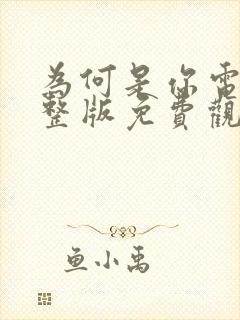 為何是你電
整版免費觀
鱼小禹